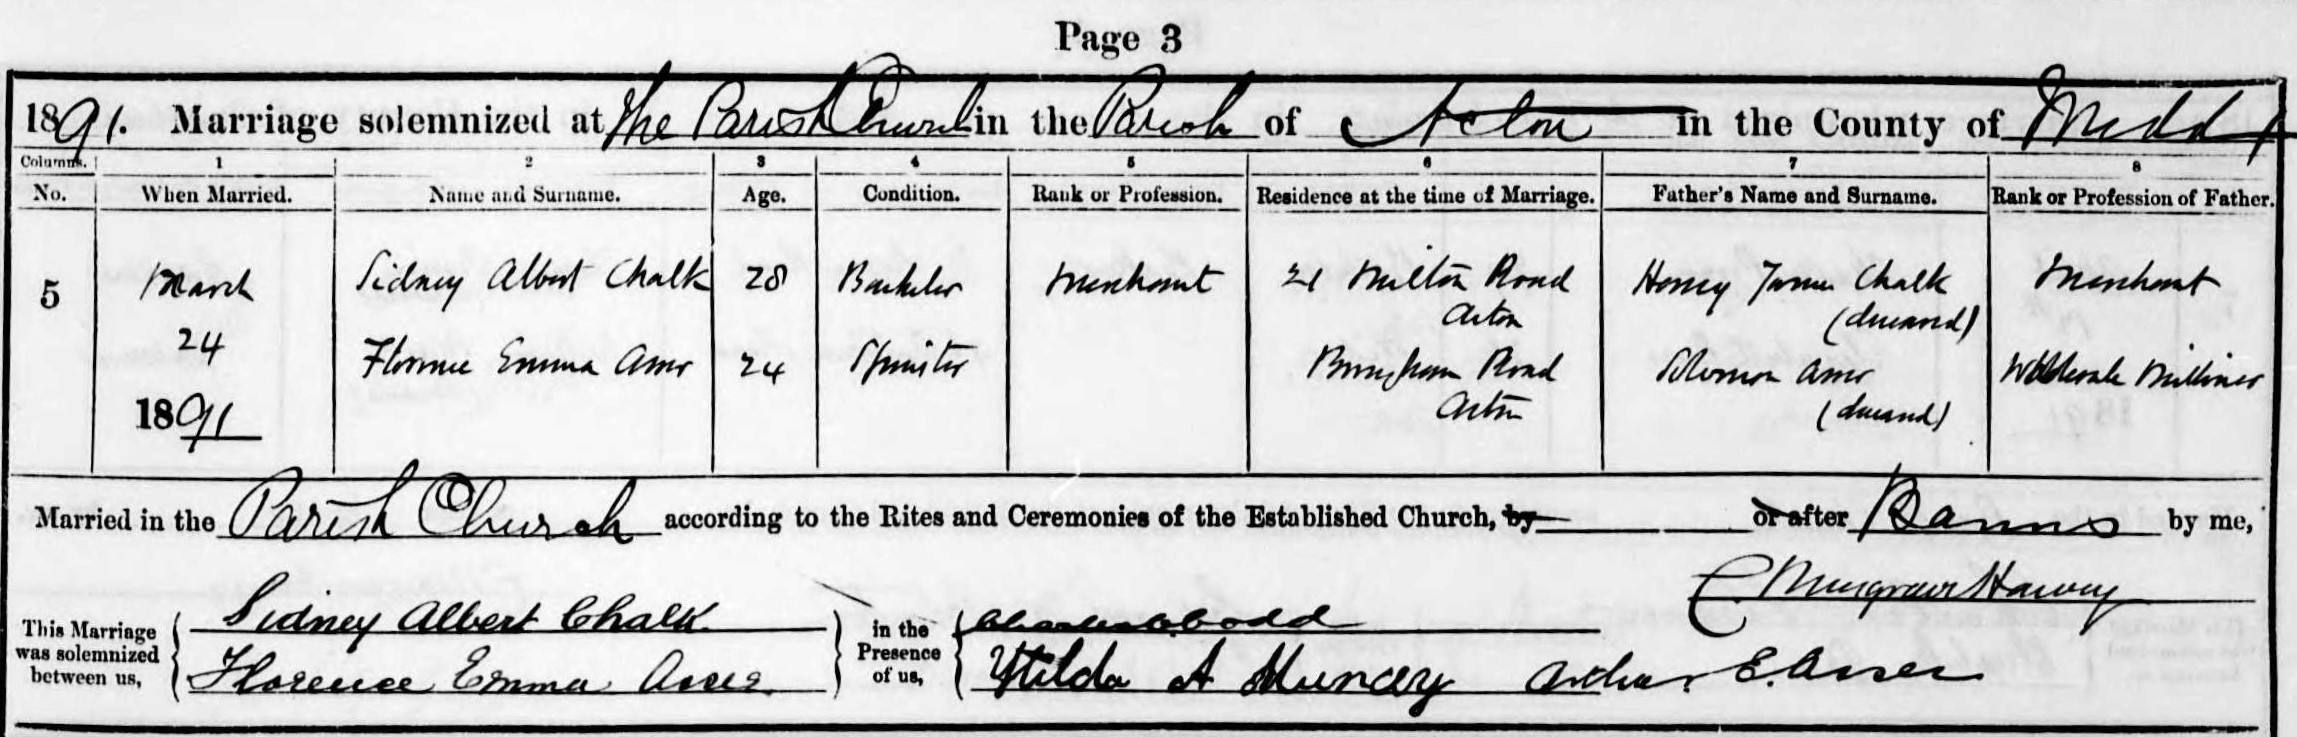 Page 3
1891. Marriage solemnized at The Parish Church in the Parish of Acton in the County of Middx
Columns. 1 2 3 4 5 6 7 8
No. When Married. Name and Surname. Age. Condition. Rank or Profession. Residence at the time of Marriage. Father's Name and Surname. Rank or Profession of Father.
5 March Sidney Albert Chalk 28 Bachelor Merchant 21 Milton Road Henry James Chalk Merchant
Acton (deceased)
24 Florence Emma Asser 24 Spinster Road Solomon Asser Wholesale Milliner
Acton (deceased)
1891
Married in the Parish Church according to the Rites and Ceremonies of the Established Church, by or after Banns by me,
C. Musgrave Harvey
This Marriage was solemnized between us, Sidney Albert Chalk in the Presence of us, Dodd
Florence Emma Asser Hilda A Muncey Arthur E. Asser